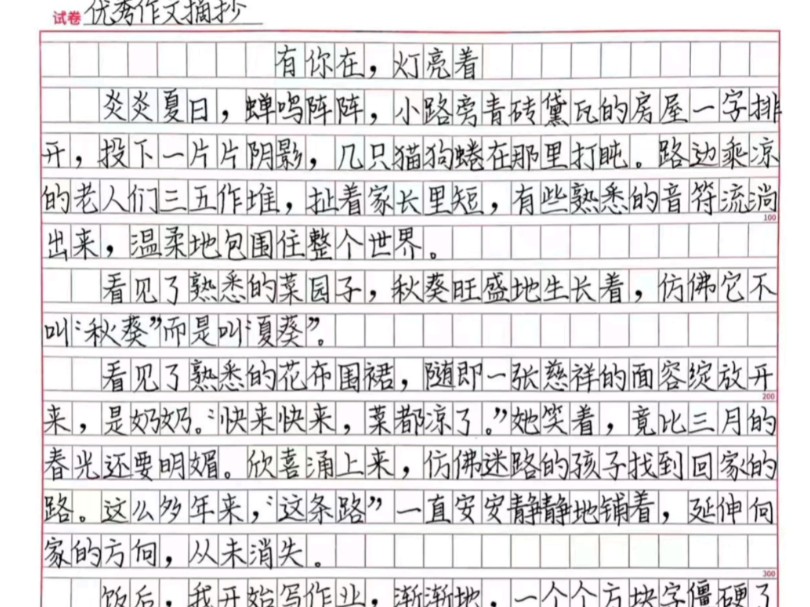 试卷 优秀作文摘抄
有你在，灯亮着
炎炎夏日，蝉鸣阵阵，小路旁青砖黛瓦的房屋一字排
开，投下一片片阴影，几只猫狗蜷在那里打盹。路边乘凉
的老人们三五作堆，扯着家长里短，有些熟悉的音符流淌
100
出来，温柔地包围住整个世界。
看见了熟悉的菜园子，秋葵旺盛地生长着，仿佛它不
叫“秋葵”而是叫“夏葵”。
看见了熟悉的花布围裙，随即一张慈祥的面容绽放开
200
来，是奶奶。“快来快来，菜都凉了。”她笑着，竟比三月的
春光还要明媚。欣喜涌上来，仿佛迷路的孩子找到回家的
路。这么多年来，“这条路”一直安安静静地铺着，延伸向
家的方向，从未消失。
300
饭后，我开始写作业，渐渐地，一个个方块字僵硬了